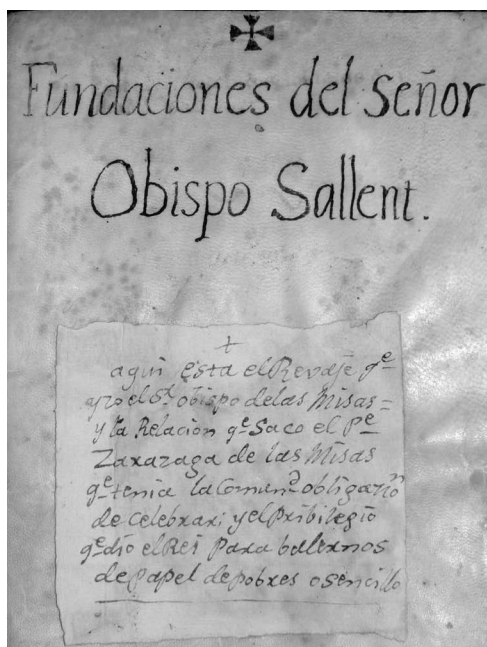 Fundaciones del Señor
Obispo Sallent.
aqui esta el Revaje qe
yzo el Sr obispo de las Misas =
y la Relacion qe Saco el Pe
Zaxazaga de las Misas
qe tenia la Comund obligazion
de Celebxax; y el pribilegio
qe dio el Rei Paxa balexnos
de papel de pobxes o sencillo